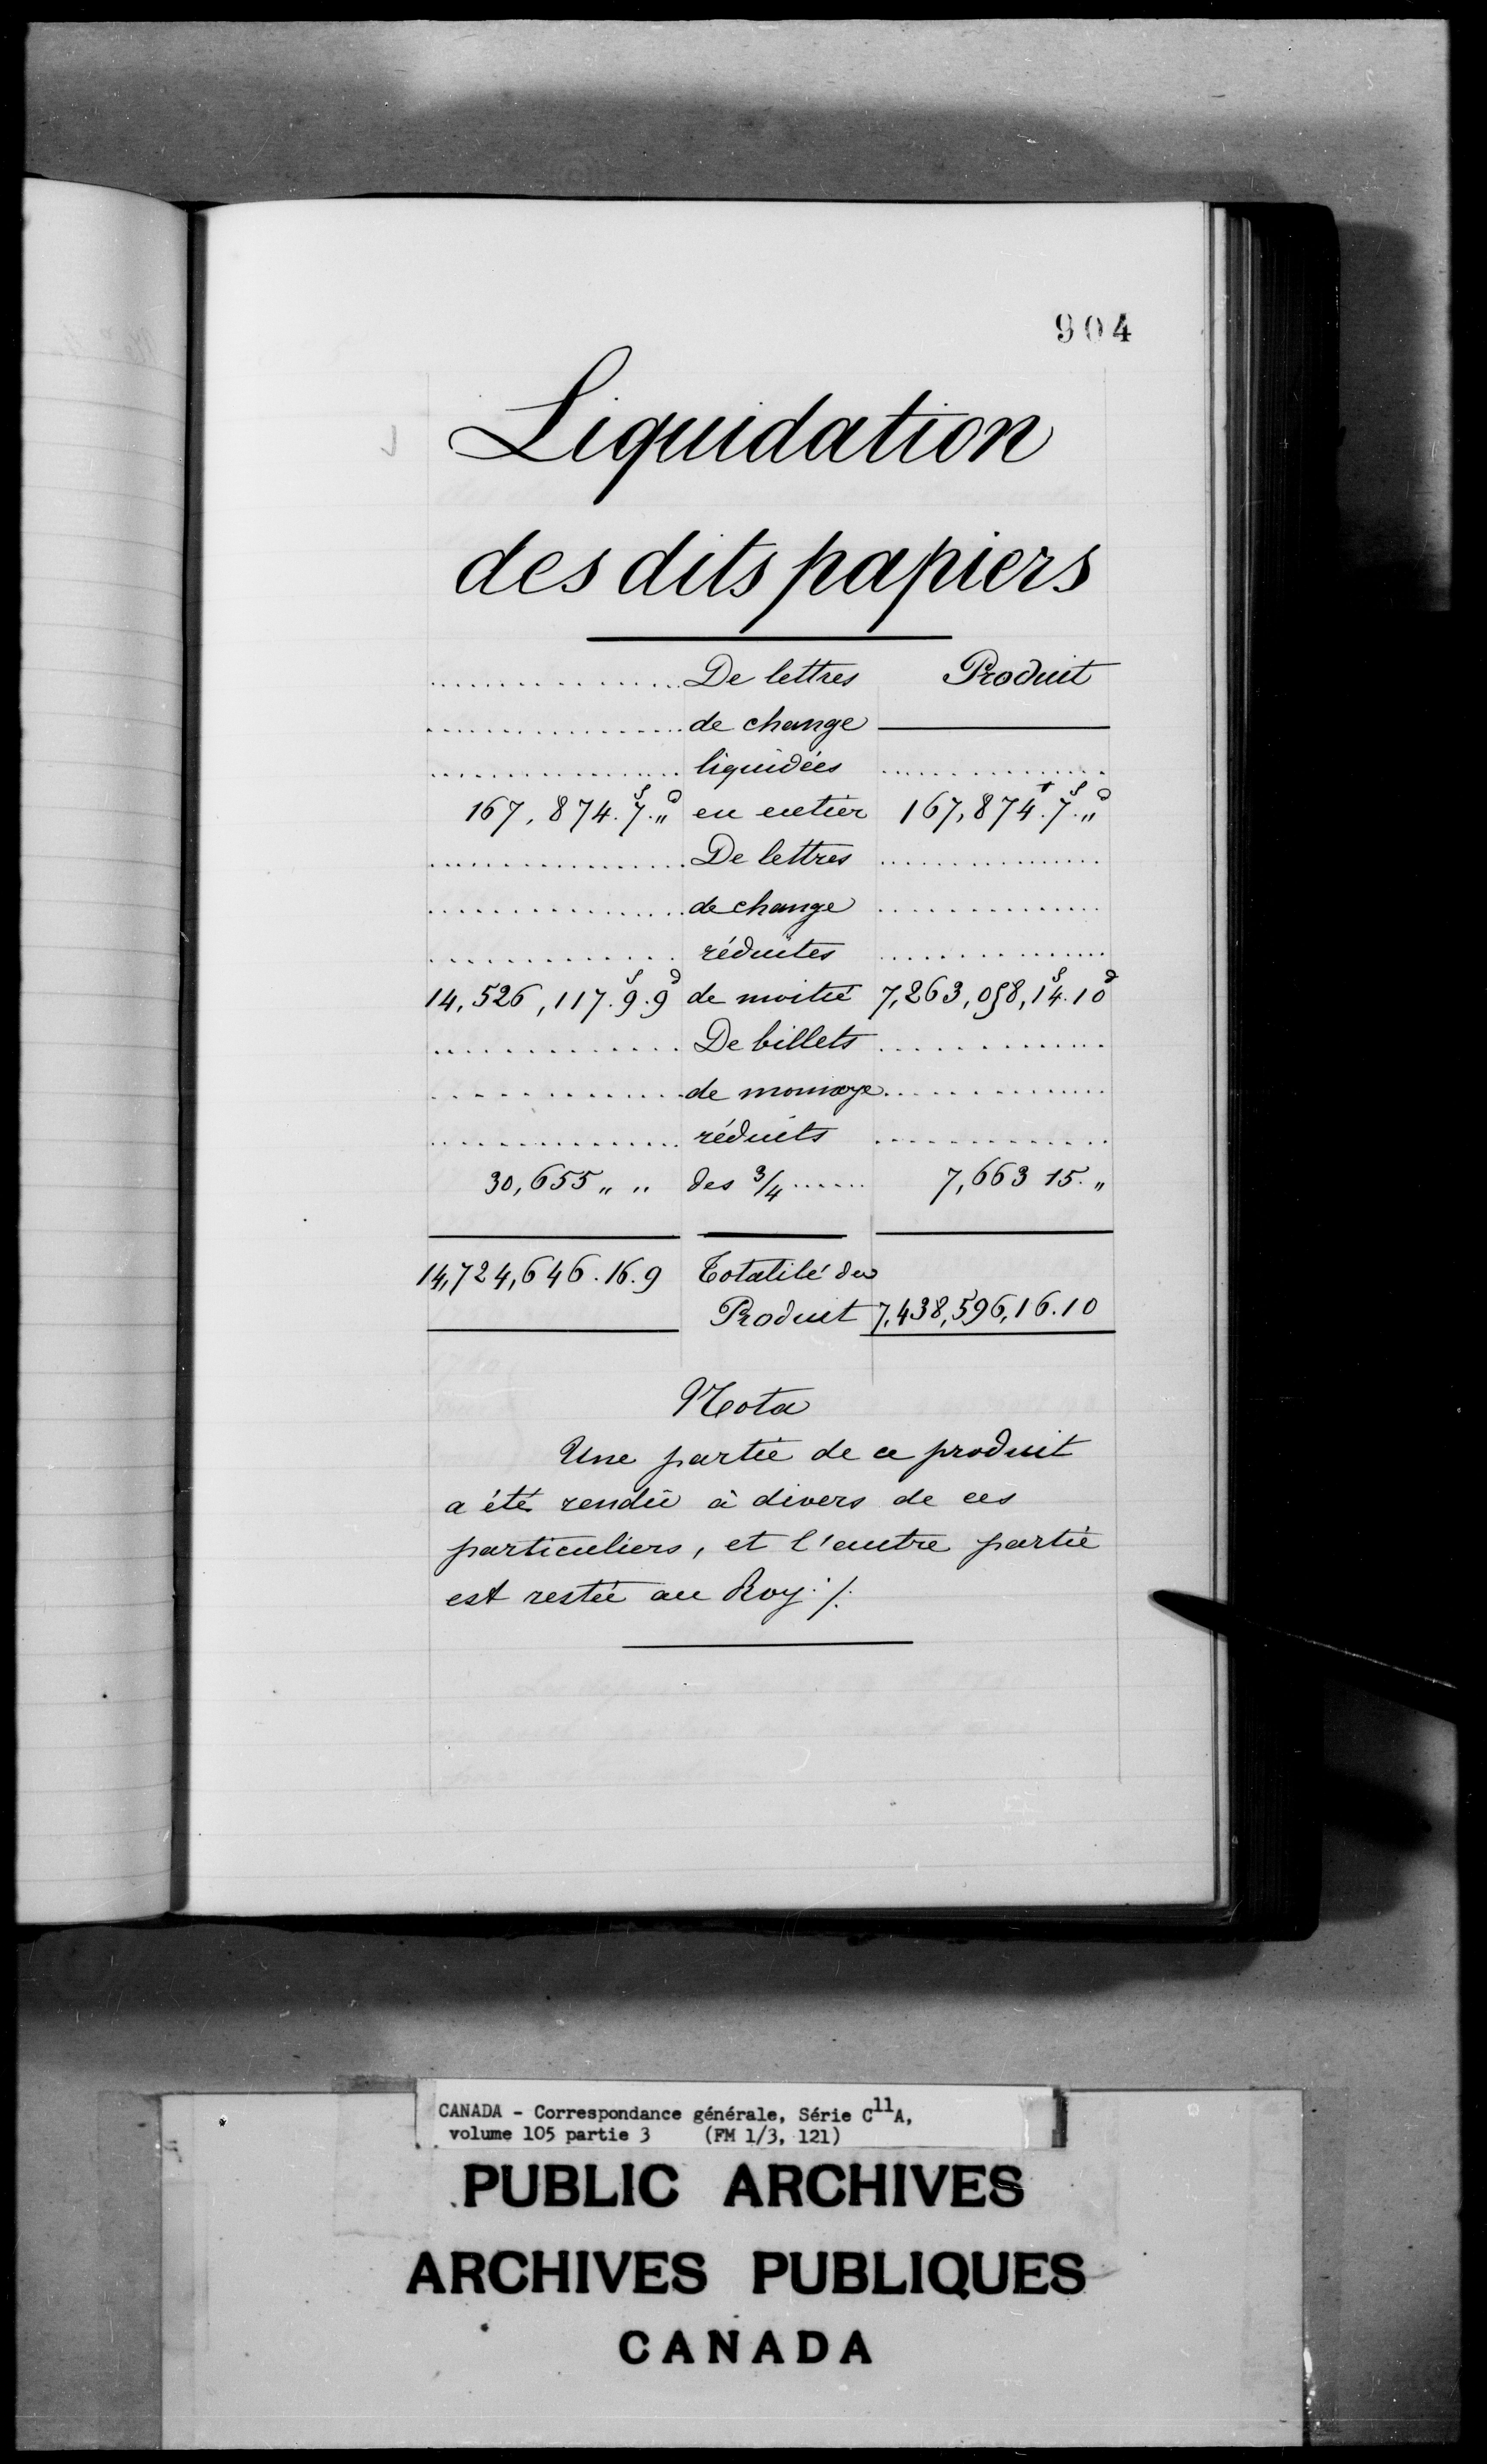 904
Liquidation
des dits papiers
................ De lettres Produit
................ de change
................ liquidées ................
167,874.7.s „d en entier 167,874.7.s „d
................ De lettres ................
................ de change ................
................ réduites ................
14,526,117.9.s 9d de moitié 7,263,058,14.s 10d
................ De billets ................
................ de monnoye ................
................ réduits ................
30,655 „ „ des 3/4 ...... 7,663 15. „
14,724,646.16.9 Totalité du
Produit 7,438,596,16.10
Nota
Une partie de ce produit
a été rendüe à divers de ces
particuliers, et l'autre partie
est restée au Roy ./.
CANADA - Correspondance générale, Série C11A,
volume 105 partie 3 (FM 1/3, 121)
PUBLIC ARCHIVES
ARCHIVES PUBLIQUES
CANADA